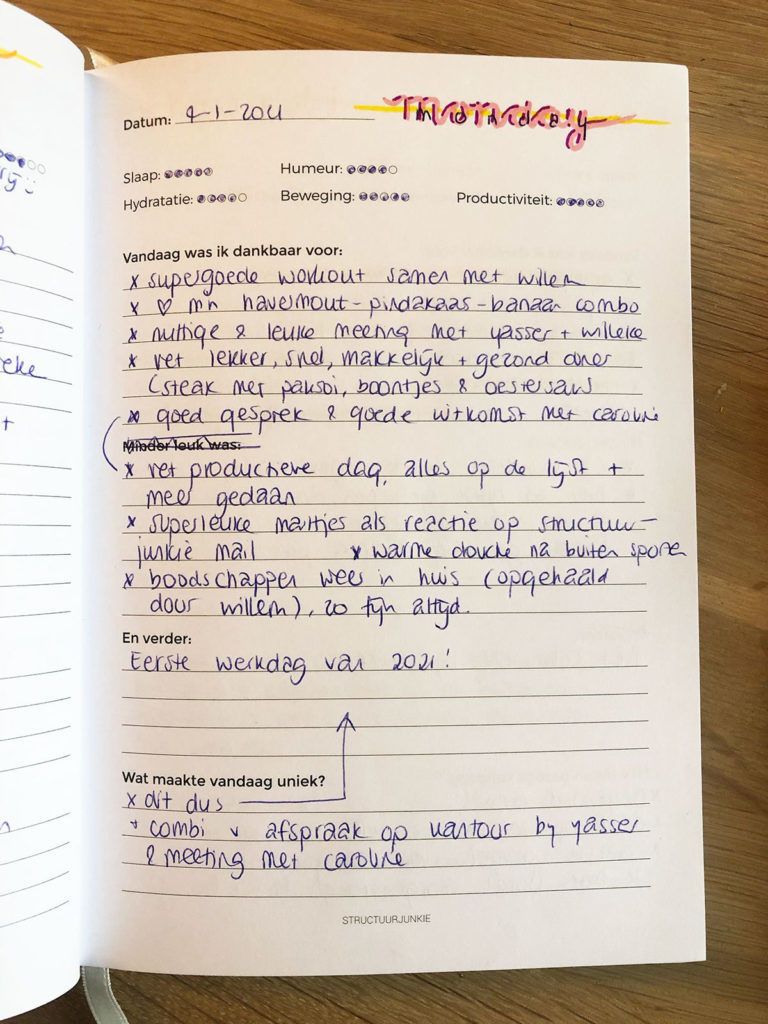 Datum: 4-1-2021
Monday
Slaap:
Humeur:
Hydratatie:
Beweging:
Productiviteit:
Vandaag was ik dankbaar voor:
x supergoede workout samen met willem
x ♡ mn havermout-pindakaas-banaan combo
x nuttige & leuke meeting met yasser + willeke
x vet lekker, snel, makkelijk + gezond diner
(steak met paksoi, boontjes & oestersaus
x goed gesprek & goede uitkomst met caroline
Minder leuk was:
x vet productieve dag, alles op de lijst +
meer gedaan
x superleuke mailtjes als reactie op structuur-
junkie mail x warme douche na buiten sporten
x boodschappen weer in huis (opgehaald
door willem), zo fijn altijd.
En verder:
Eerste werkdag van 2021!
Wat maakte vandaag uniek?
x dit dus
+ combi v afspraak op kantoor bij yasser
& meeting met caroline
STRUCTUURJUNKIE